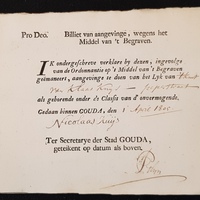 Pro Deo. Billiet van aangevinge, wegens het
Middel van 't Begraven.
IK ondergeschreve verklare by dezen, ingevolge
van de Ordonnantie op 't Middel van 't Begraven
geëmaneert, aangevinge te doen van het Lyk van
als gehorende onder de Classis van d'onvermogende.
Gedaan binnen GOUDA, den 1 April
Nicolaas
Ter Secretarye der Stad GOUDA,
geteikent op datum als boven,